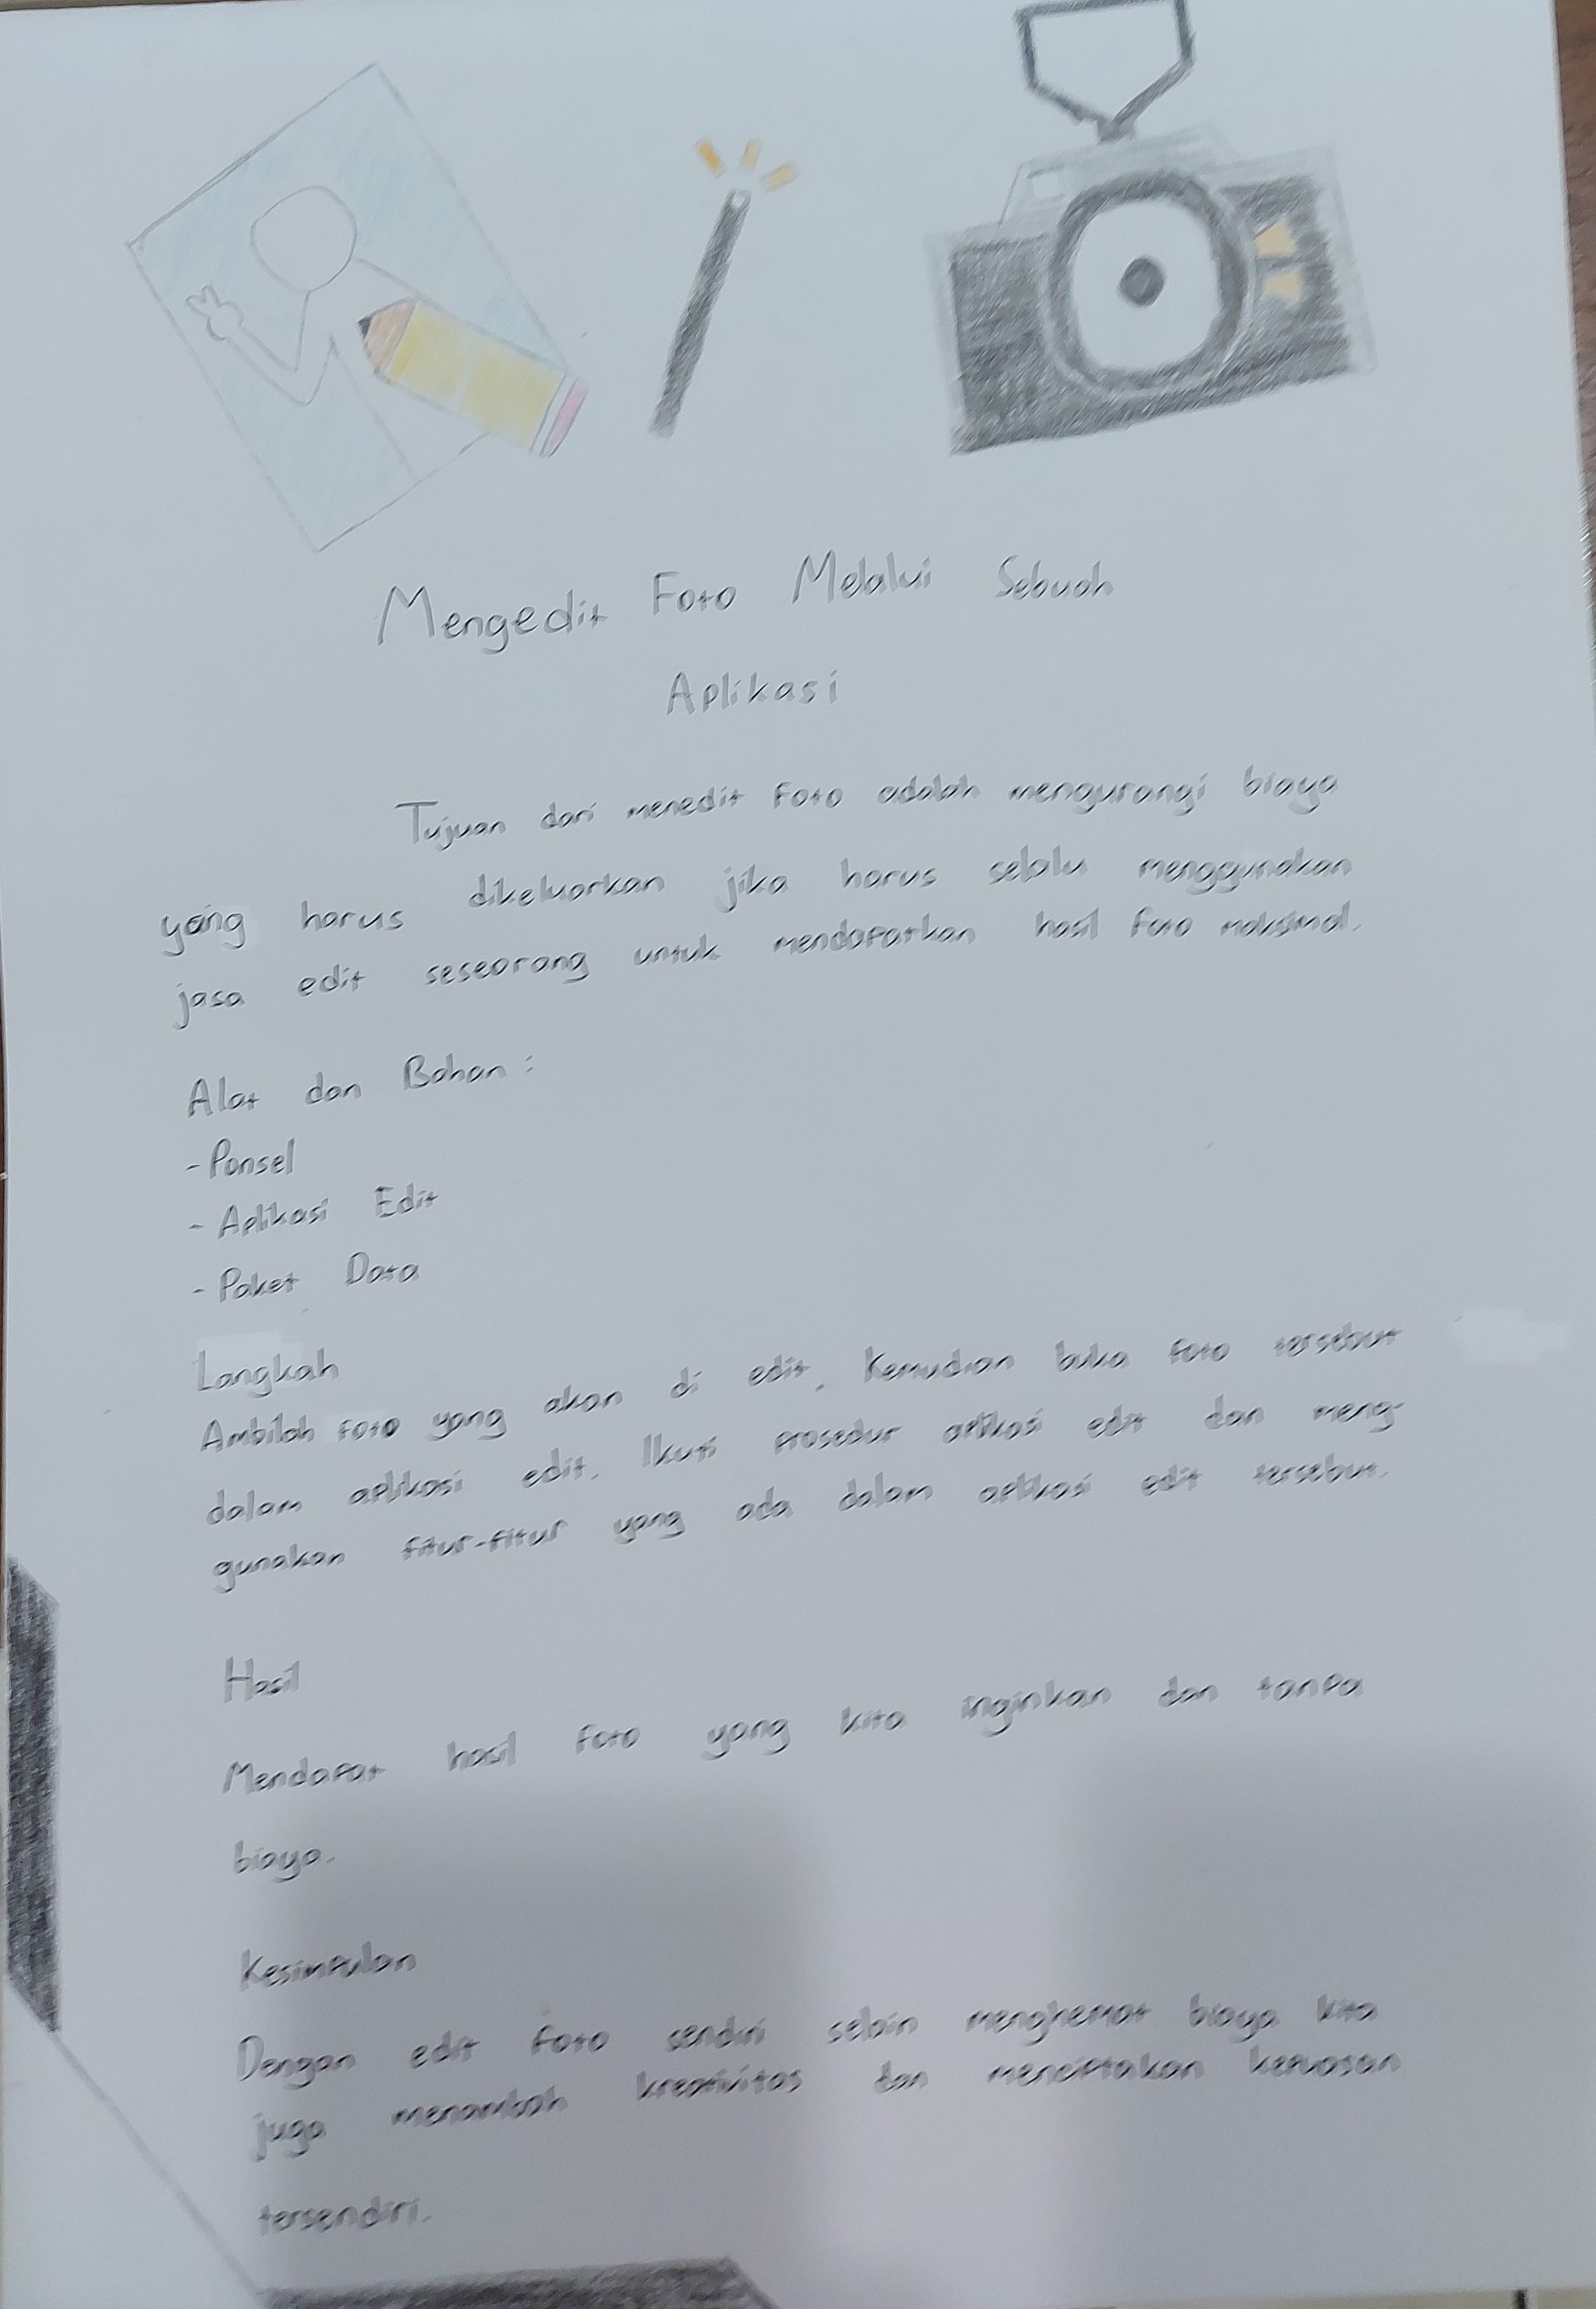 Mengedit Foto Melalui Sebuah
Aplikasi
Tujuan dari menedit Foto adalah mengurangi biaya
yang harus dikeluarkan jika harus selalu menggunakan
jasa edit seseorang untuk mendapatkan hasil foto maksimal.
Alat dan Bahan :
- Ponsel
- Aplikasi Edit
- Paket Data
Langkah
Ambilah foto yang akan di edit. Kemudian buka foto tersebut
dalam aplikasi edit. Ikuti prosedur aplikasi edit dan meng-
gunakan fitur-fitur yang ada dalam aplikasi edit tersebut.
Hasil
Mendapat hasil foto yang kita inginkan dan tanpa
biaya.
Kesimpulan
Dengan edit foto sendiri selain menghemat biaya kita
juga menambah kreativitas dan menciptakan kepuasan
tersendiri.